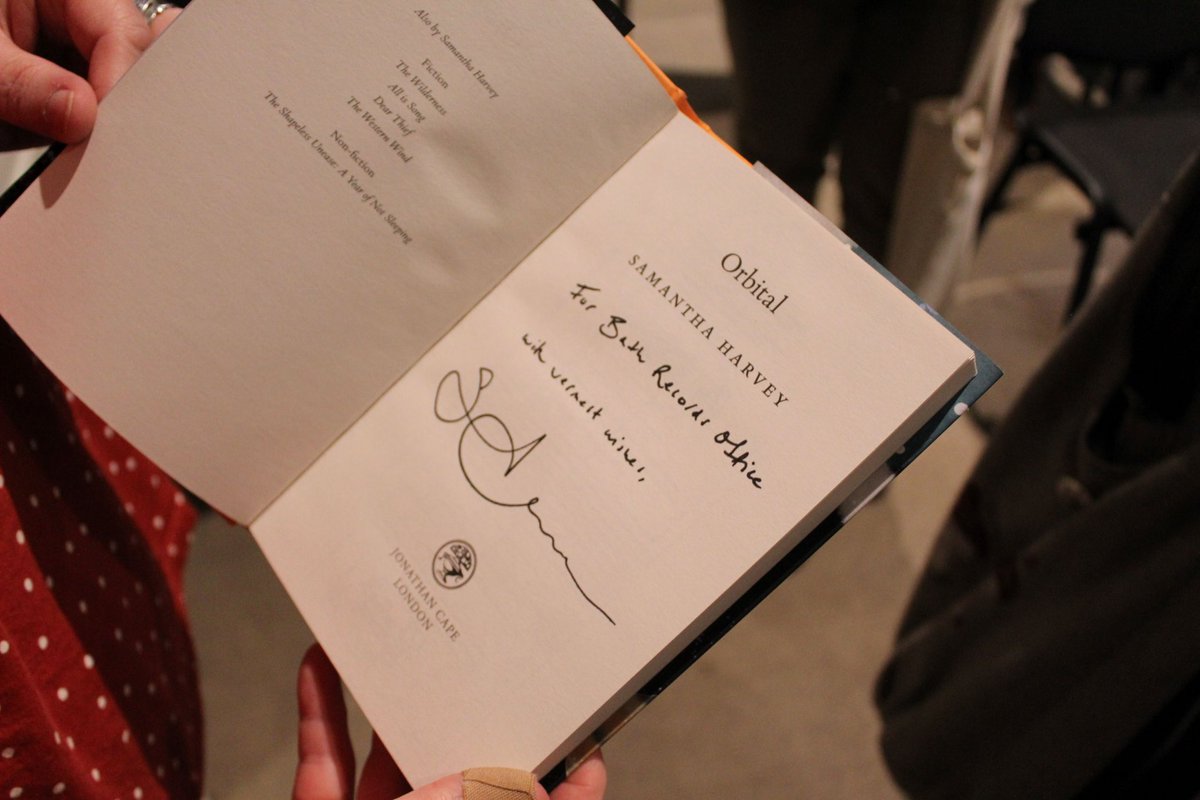 Also by Samantha Harvey
Fiction
The Wilderness
All is Song
Dear Thief
The Western Wind
Non-fiction
The Shapeless Unease: A Year of Not Sleeping
Orbital
SAMANTHA HARVEY
For Bath Records Office
with warmest wishes,
JONATHAN CAPE
LONDON